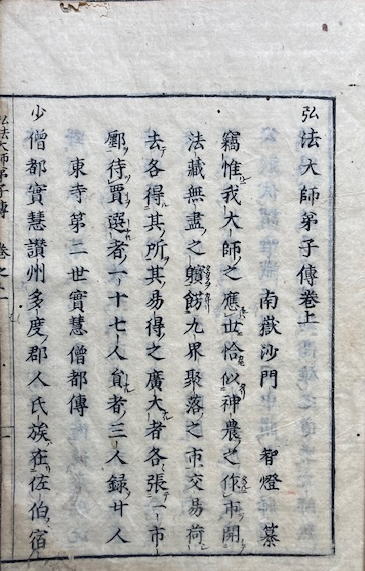 弘法大師弟子傳卷上
南嶽沙門 智燈 纂
竊惟我大師之應世恰似神農之作市開
法藏無盡之曠餝九界聚落之市交易荷
去各得其所其易得之廣大者各張一市
酈待賈選者一十七人貟者三人録廿人
東寺第二世實慧僧都傳
少僧都實慧讃州多度郡人氏族在佐伯宿
弘法大師弟子傳 卷之上